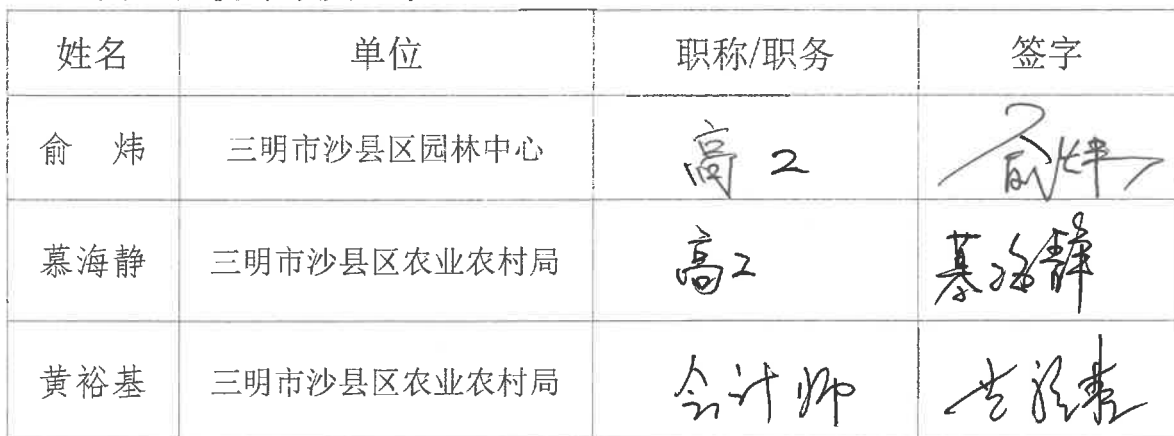 姓名 单位 职称/职务 签字
俞 炜 三明市沙县区园林中心 高工 俞炜
慕海静 三明市沙县区农业农村局 高工 慕海静
黄裕基 三明市沙县区农业农村局 会计师 黄裕基